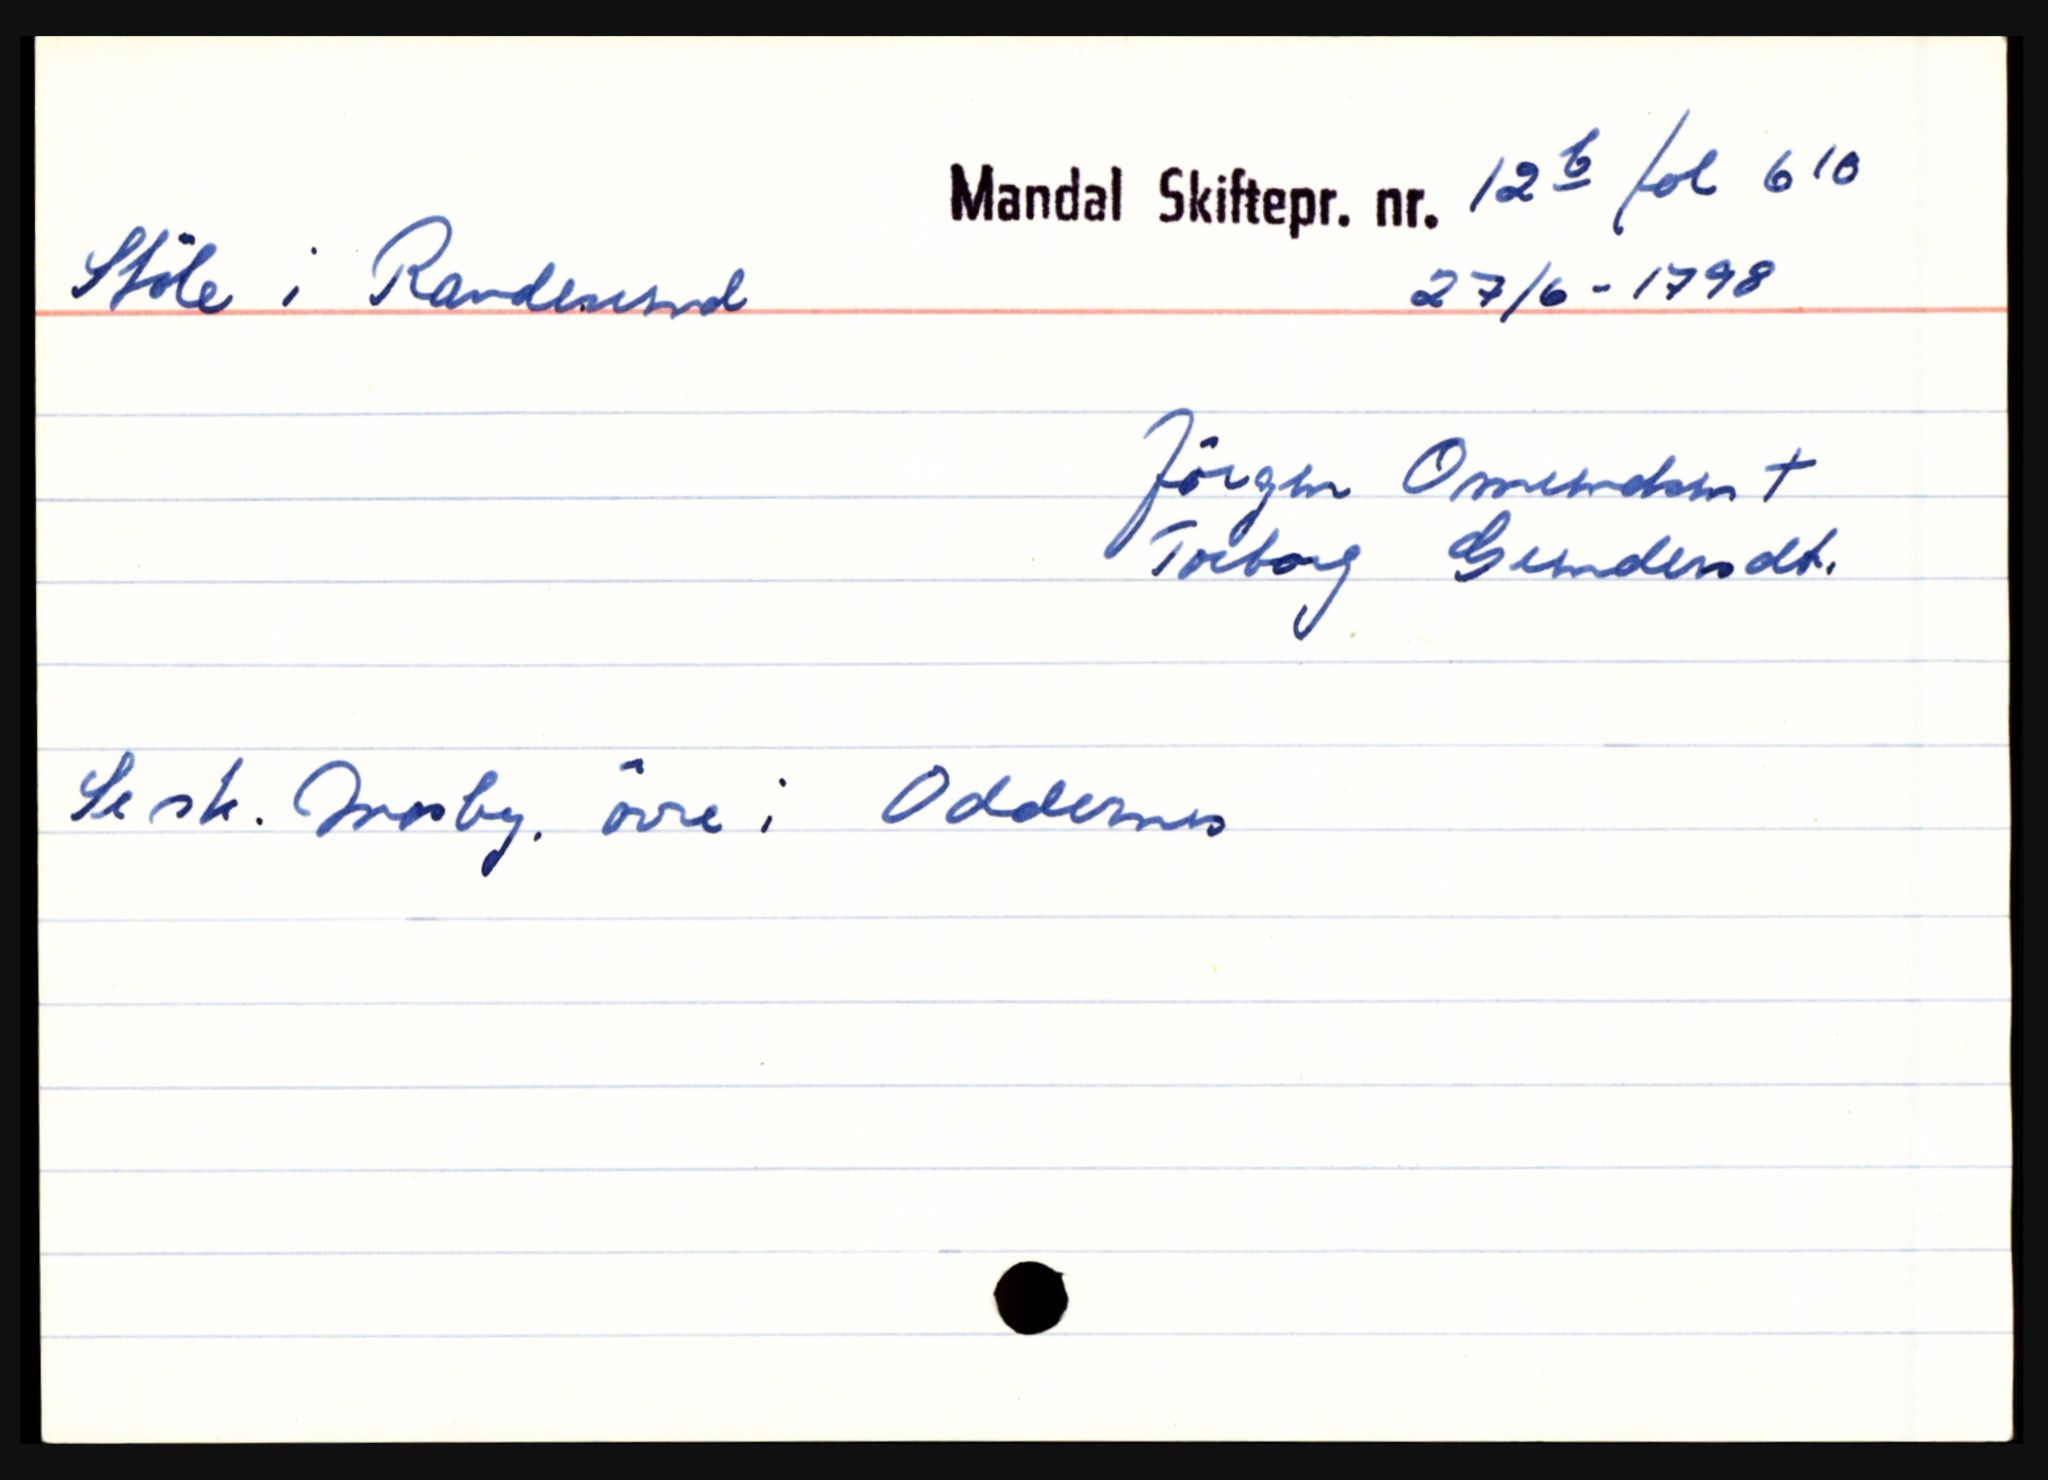 Mandal Skiftepr. nr. 12 b fol 610
Stöle i Randesund 27/6 - 1798
Jörgen Omundsen +
Torborg Gundersdt.
Se sk. Mosby. övre i Oddernes